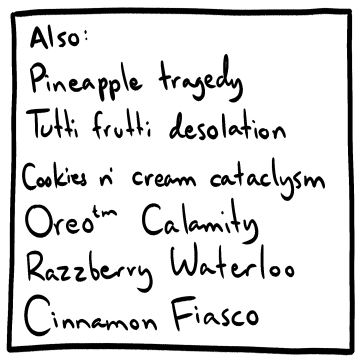 Also:
Pineapple tragedy
Tutti frutti desolation
Cookies n' cream cataclysm
Oreo™ Calamity
Razzberry Waterloo
Cinnamon Fiasco